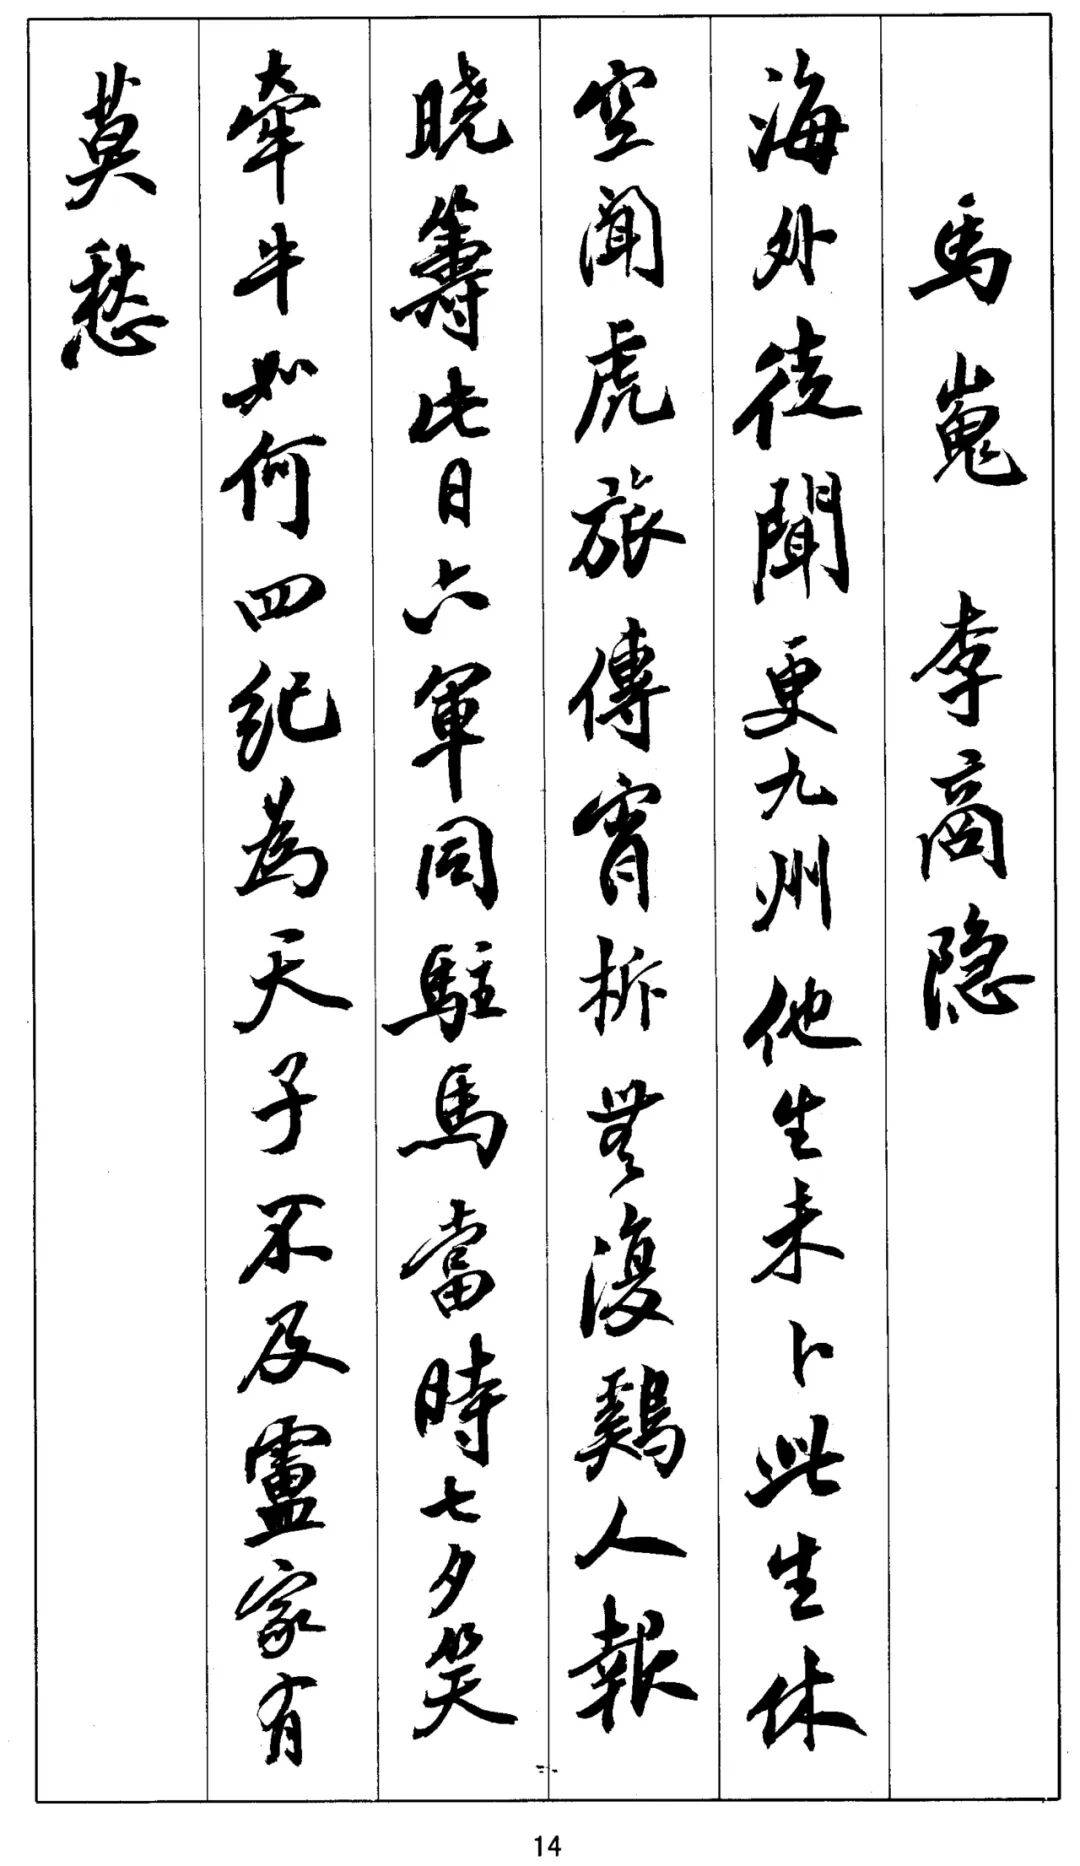 馬嵬 李商隐
海外徒聞更九州他生未卜此生休
空聞虎旅傳宵柝無復鷄人報
晓籌此日六軍同駐馬當時七夕笑
牽牛如何四纪為天子不及盧家有
莫愁
14